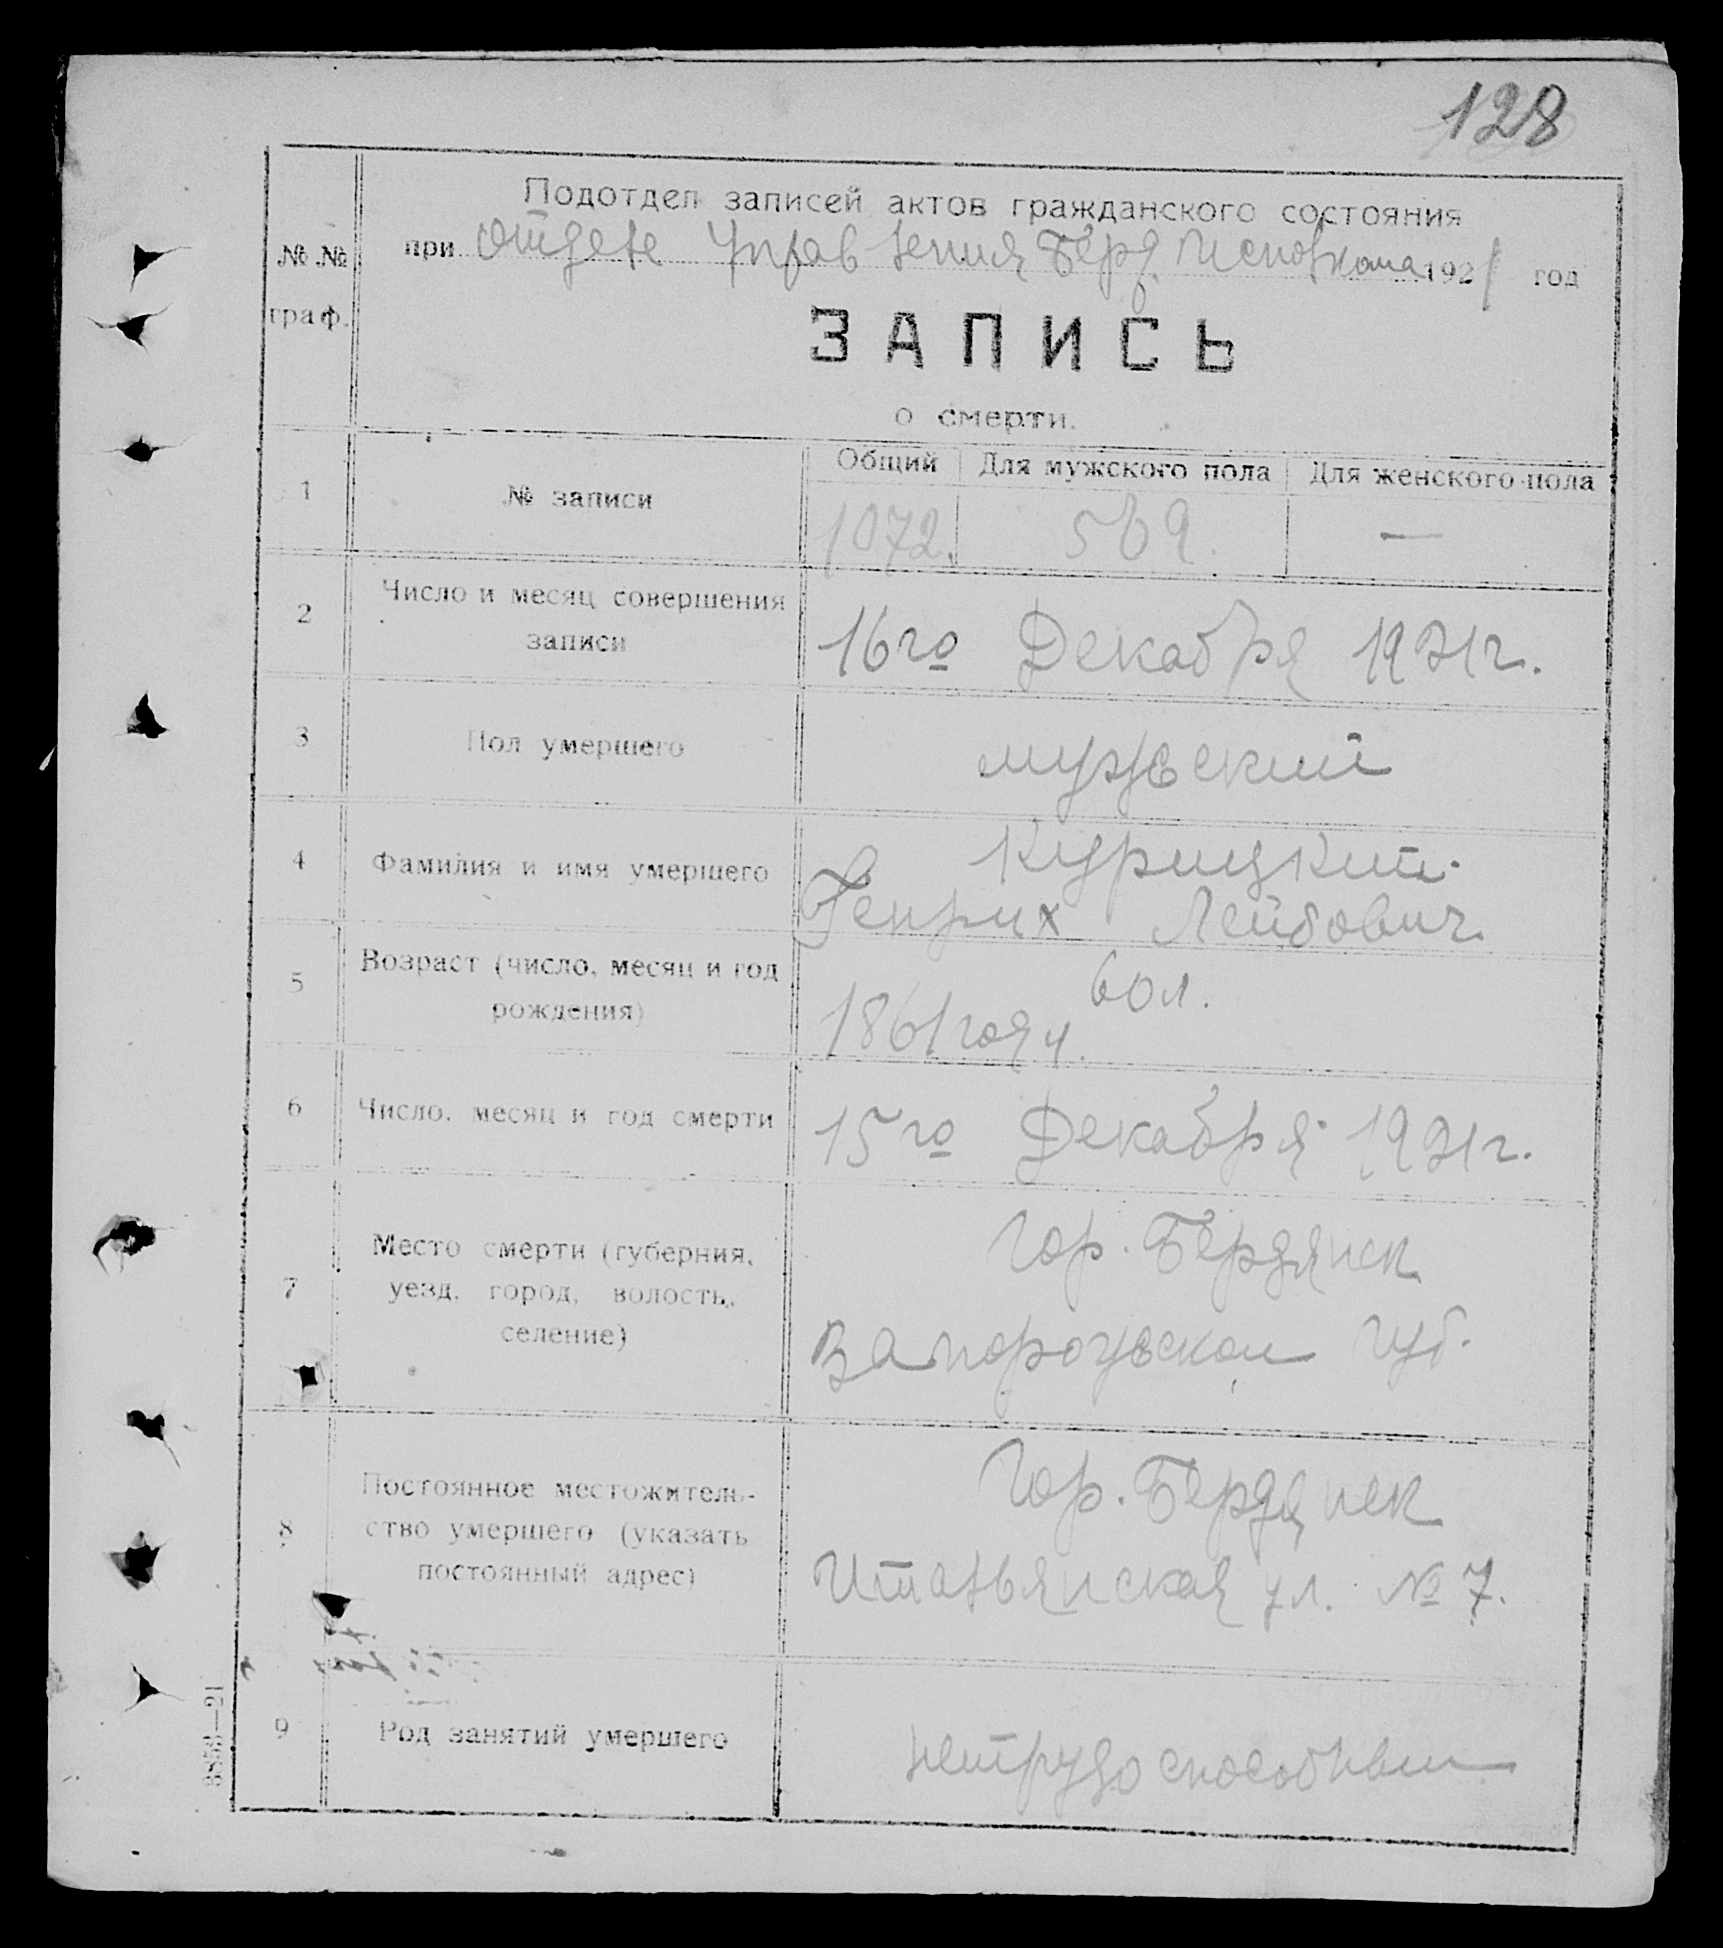 128
Подотдел записей актов гражданского состояния
при Отделе Управления Берд. Исполкома 1921 год
№ №
граф.
ЗАПИСЬ
о смерти.
1 № записи
Общий Для мужского пола Для женского пола
1072. 569. —
2 Число и месяц совершения
записи
16го Декабря 1921г.
3 Пол умершего мужский
4 Фамилия и имя умершего
Курицкий
Генрих Лейбович
5 Возраст (число, месяц и год
рождения)
60 л.
1861 году.
6 Число, месяц и год смерти 15го Декабря 1921г.
7 Место смерти (губерния,
уезд, город, волость,
селение)
Гор. Бердянск
Запорожской губ.
8 Постоянное местожитель-
ство умершего (указать
постоянный адрес)
Гор. Бердянск
Итальянская ул. № 7.
9 Род занятий умершего нетрудоспособный
8858—21